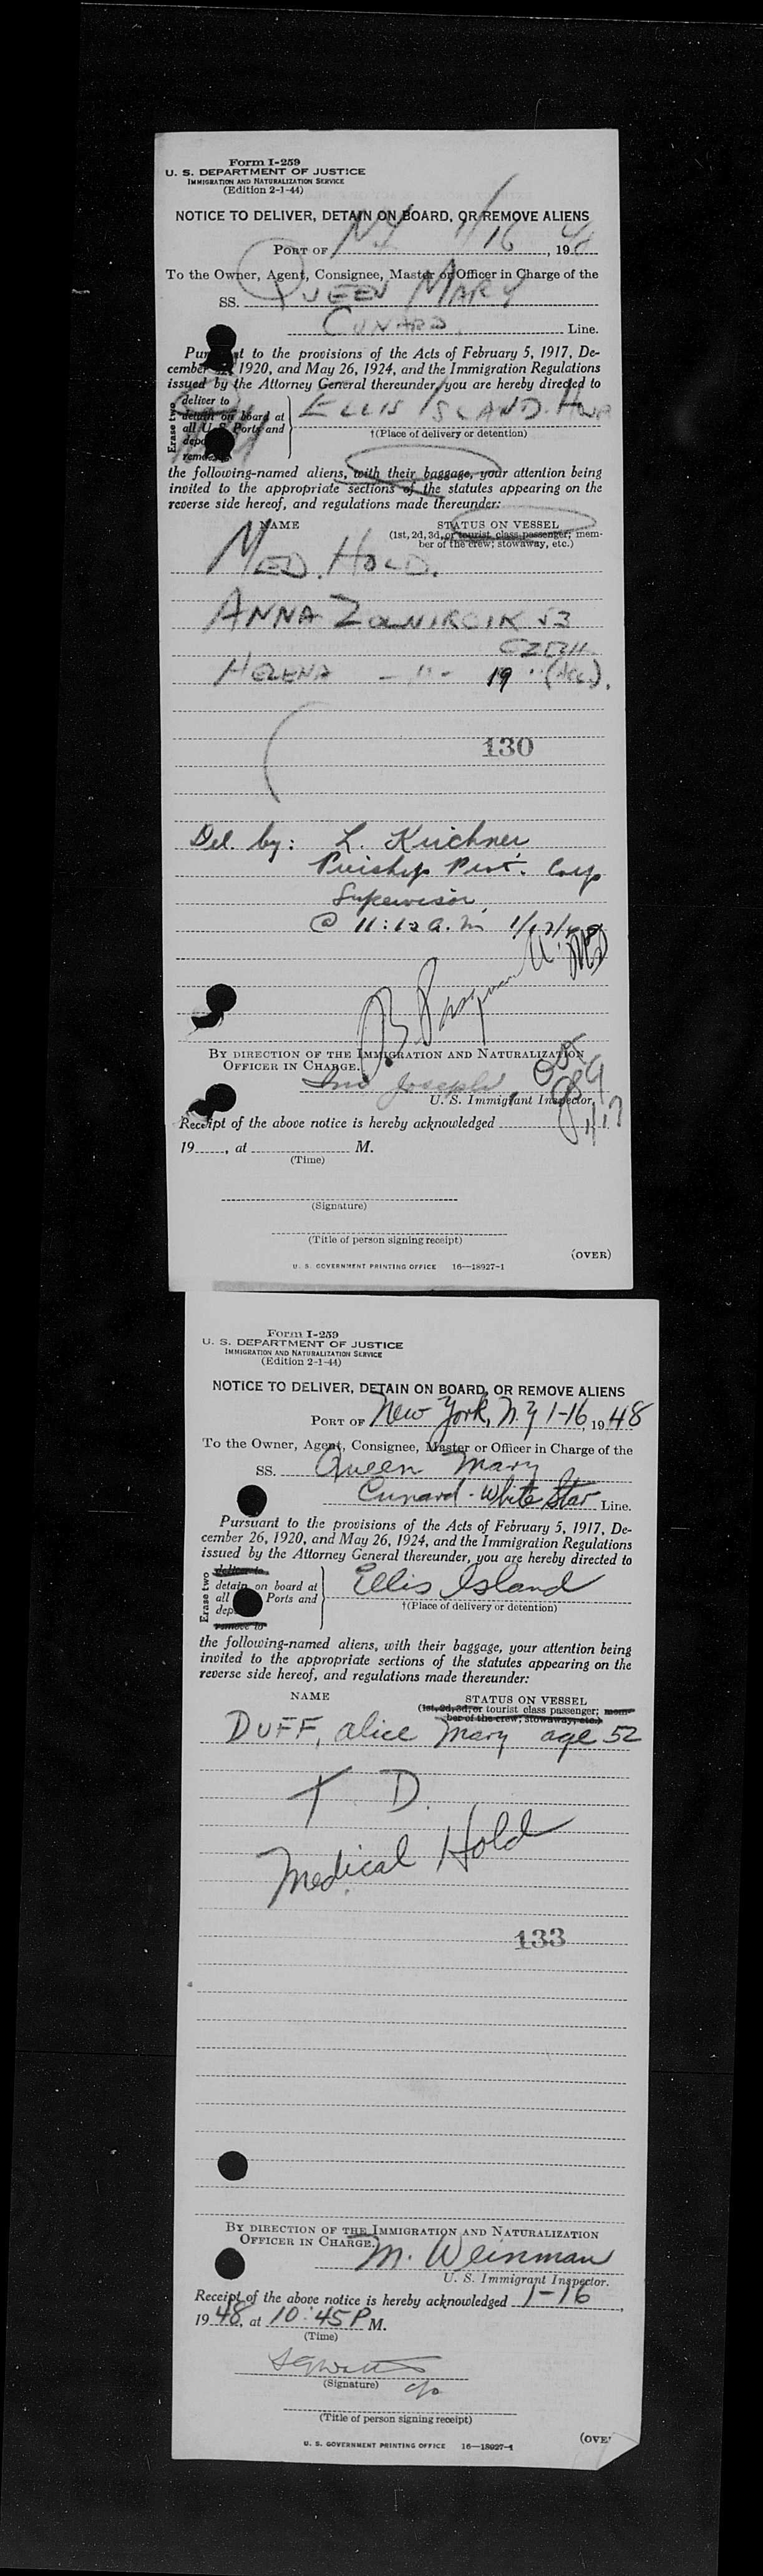 Form I-259
U. S. DEPARTMENT OF JUSTICE
IMMIGRATION AND NATURALIZATION SERVICE
(Edition 2-1-44)
NOTICE TO DELIVER, DETAIN ON BOARD, OR REMOVE ALIENS
PORT OF NY 1/16, 19
To the Owner, Agent, Consignee, Master or Officer in Charge of the
SS. QUEEN MARY
CUNARD Line.
Pursuant to the provisions of the Acts of February 5, 1917, De-
cember 1920, and May 26, 1924, and the Immigration Regulations
issued by the Attorney General thereunder, you are hereby directed to
Erase two
deliver to
detain on board at
all U. S. Ports and
remove
ELLIS ISLAND
†(Place of delivery or detention)
the following-named aliens, with their baggage, your attention being
invited to the appropriate sections of the statutes appearing on the
reverse side hereof, and regulations made thereunder:
NAME STATUS ON VESSEL
(1st, 2d, 3d, or tourist class passenger; mem-
ber of the crew; stowaway, etc.)
MED. HOLD.
ANNA 53
HELENA - " - 19 " (Acc).
130
Del. by: L. Kirchner
Corp
Supervisor
@ 11:12 a.m 1/17/48
BY DIRECTION OF THE IMMIGRATION AND NATURALIZATION
OFFICER IN CHARGE.
Joseph
U. S. Immigrant Inspector.
1/17
Receipt of the above notice is hereby acknowledged
19, at M.
(Time)
(Signature)
(Title of person signing receipt)
(OVER)
U. S. GOVERNMENT PRINTING OFFICE 16—18927-1
Form I-259
U. S. DEPARTMENT OF JUSTICE
IMMIGRATION AND NATURALIZATION SERVICE
(Edition 2-1-44)
NOTICE TO DELIVER, DETAIN ON BOARD, OR REMOVE ALIENS
PORT OF New York, N.Y 1-16, 1948
To the Owner, Agent, Consignee, Master or Officer in Charge of the
SS. Queen Mary
Cunard-White Star Line.
Pursuant to the provisions of the Acts of February 5, 1917, De-
cember 26, 1920, and May 26, 1924, and the Immigration Regulations
issued by the Attorney General thereunder, you are hereby directed to
Erase two
deliver to
detain on board at
all Ports and
dep
remove to
Ellis Island
†(Place of delivery or detention)
the following-named aliens, with their baggage, your attention being
invited to the appropriate sections of the statutes appearing on the
reverse side hereof, and regulations made thereunder:
NAME STATUS ON VESSEL
(1st, 2d, 3d, or tourist class passenger; mem-
ber of the crew; stowaway, etc.)
DUFF, alice Mary age 52
T D.
Medical Hold
133
BY DIRECTION OF THE IMMIGRATION AND NATURALIZATION
OFFICER IN CHARGE.
M. Weinman
U. S. Immigrant Inspector.
Receipt of the above notice is hereby acknowledged 1-16,
1948, at 10:45 P M.
(Time)
(Signature)
(Title of person signing receipt)
(OVE
U. S. GOVERNMENT PRINTING OFFICE 16—18927-1